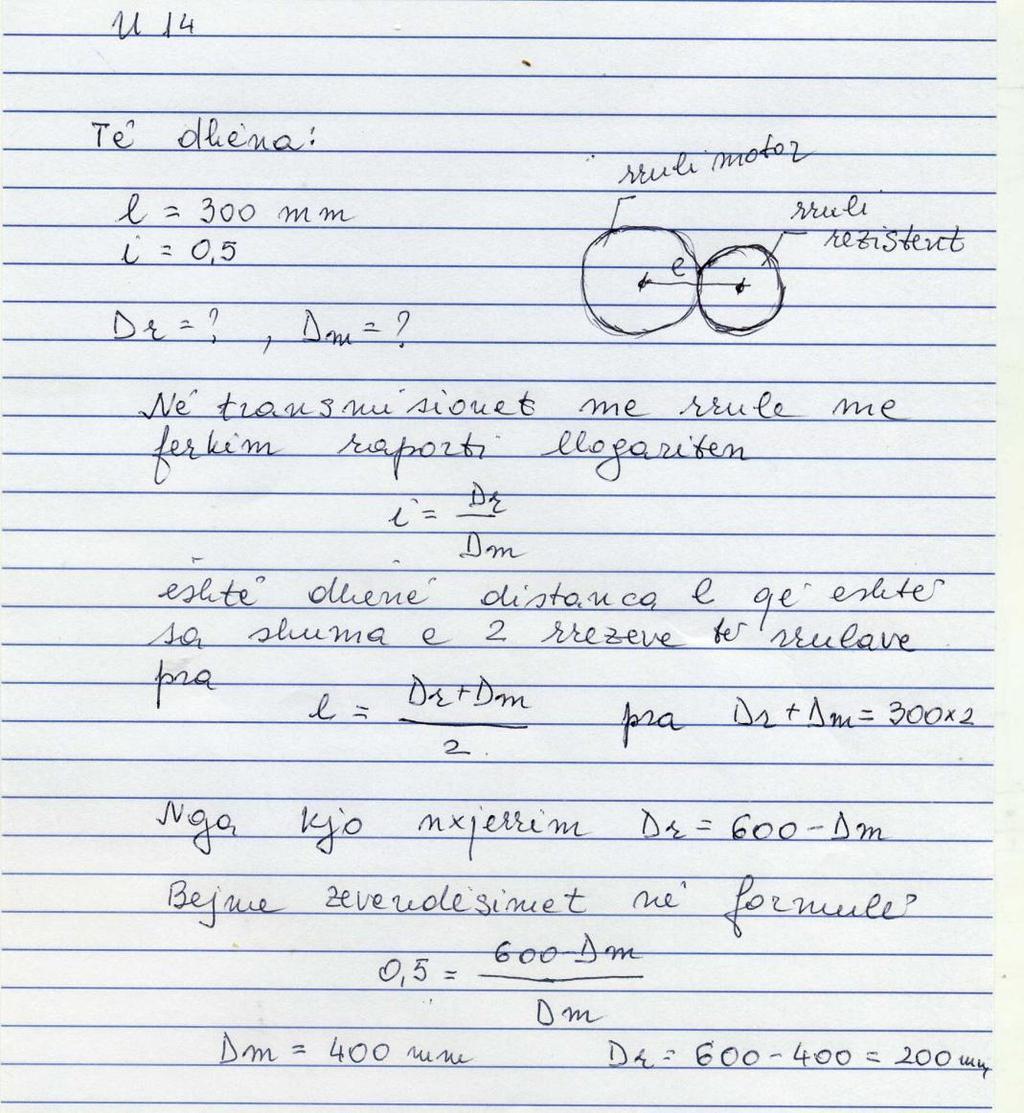 U 14
Të dhëna:
rruli motor
l = 300 mm
i = 0,5
rruli
rezistent
e
Dr = ? , Dm = ?
Në transmisionet me rrule me
ferkim raporti llogariten
i = Dr / Dm
është dhënë distanca l që eshtë
sa shuma e 2 rrezeve të rrulave
pra
l = Dr + Dm / 2 pra Dr + Dm = 300 x 2
Nga kjo nxjerrim Dr = 600 - Dm
Bejme zevendësimet në formulë
0,5 = 600 - Dm / Dm
Dm = 400 mm Dr = 600 - 400 = 200 mm